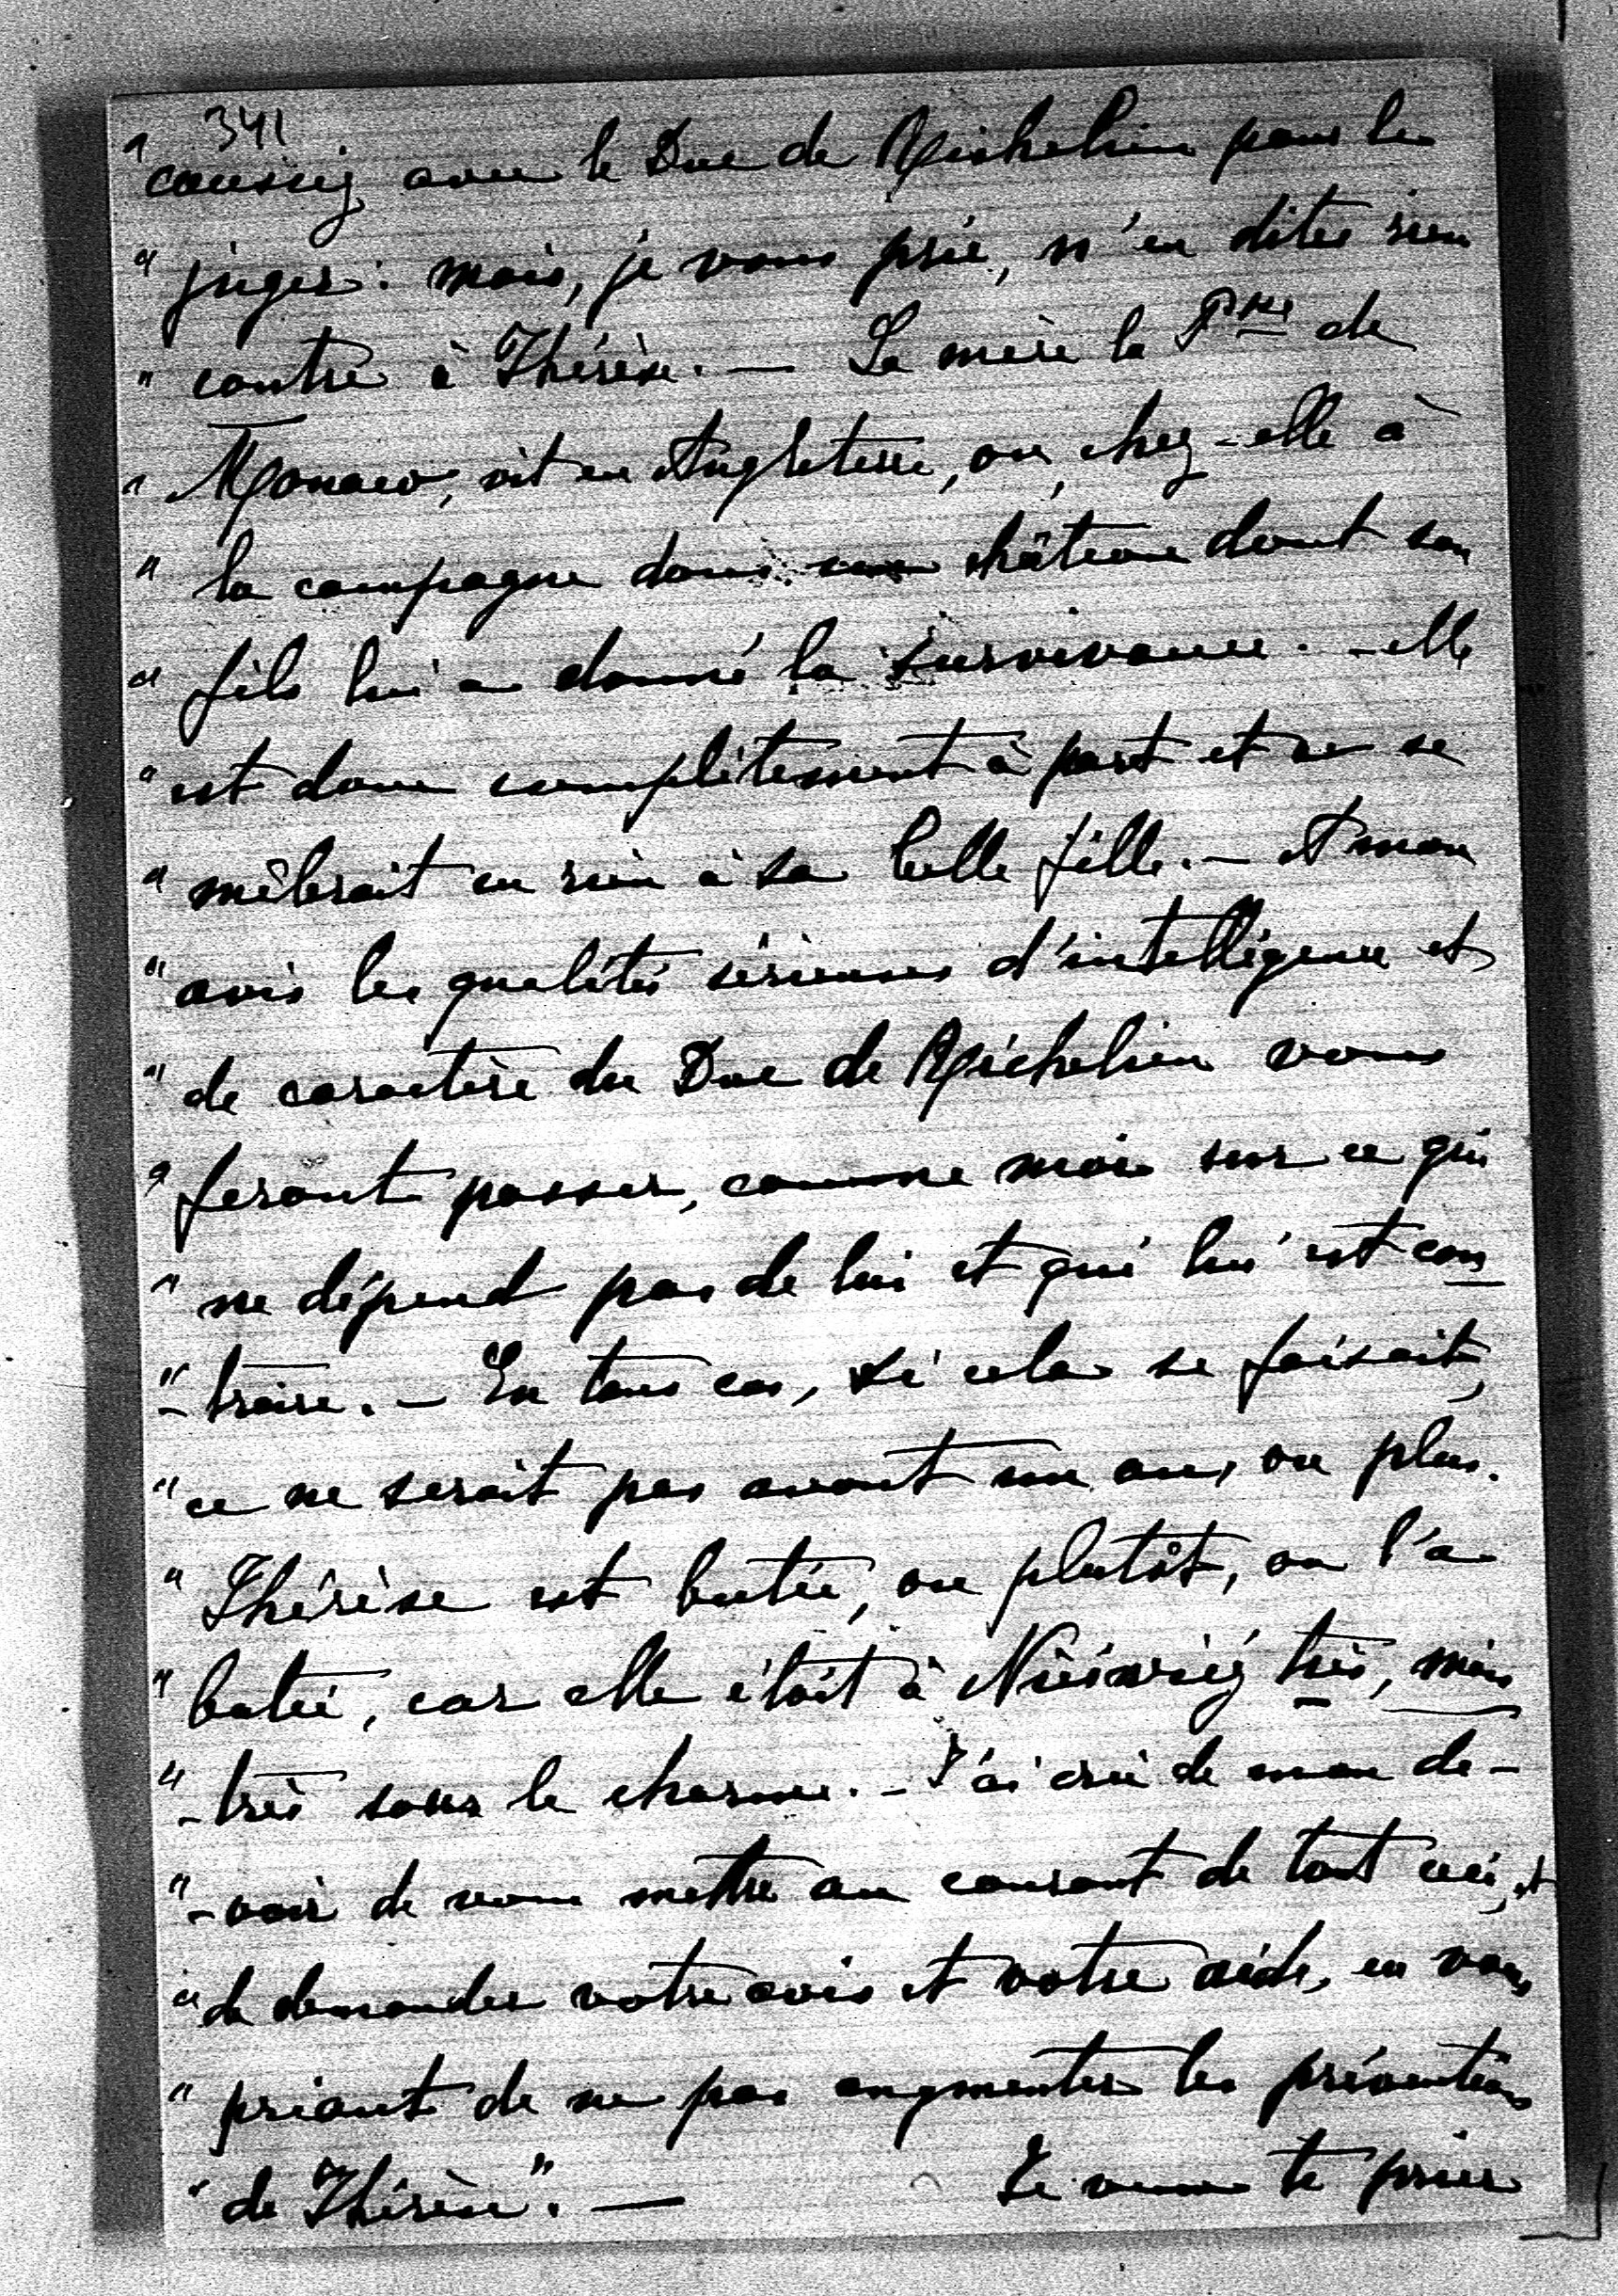 341
" causiez avec le Duc de Richelieu pour le
" juger : mais, je vous prie, n'en dites rien
" contre à Thérèse. — Sa mère la Psse de
" Monaco, vit en Angleterre, ou, chez-elle à
" la campagne dans un château dont son
" fils lui a donné la survivance. - elle
" est donc complètement à part et ne se
" mêlerait en rien à sa belle fille. — A mon
" avis les qualités sérieuses d'intelligence et
" de caractère du Duc de Richelieu vous
" feront passer, comme moi sur ce qui
" ne dépend pas de lui et qui lui est con
" - traire. — En tous cas, si cela se faisait,
" ce ne serait pas avant un an, ou plus.
" Thérèse est butée, ou plutôt, on l'a
" butée, car elle était à très, mais
" - très sous le charme. - J'ai cru de mon de-
" - voir de vous mettre au courant de tout ceci, et
" de demander votre avis et votre aide, en vous
" priant de ne pas augmenter les préventions
" de Thérèse". — Je veux te prier